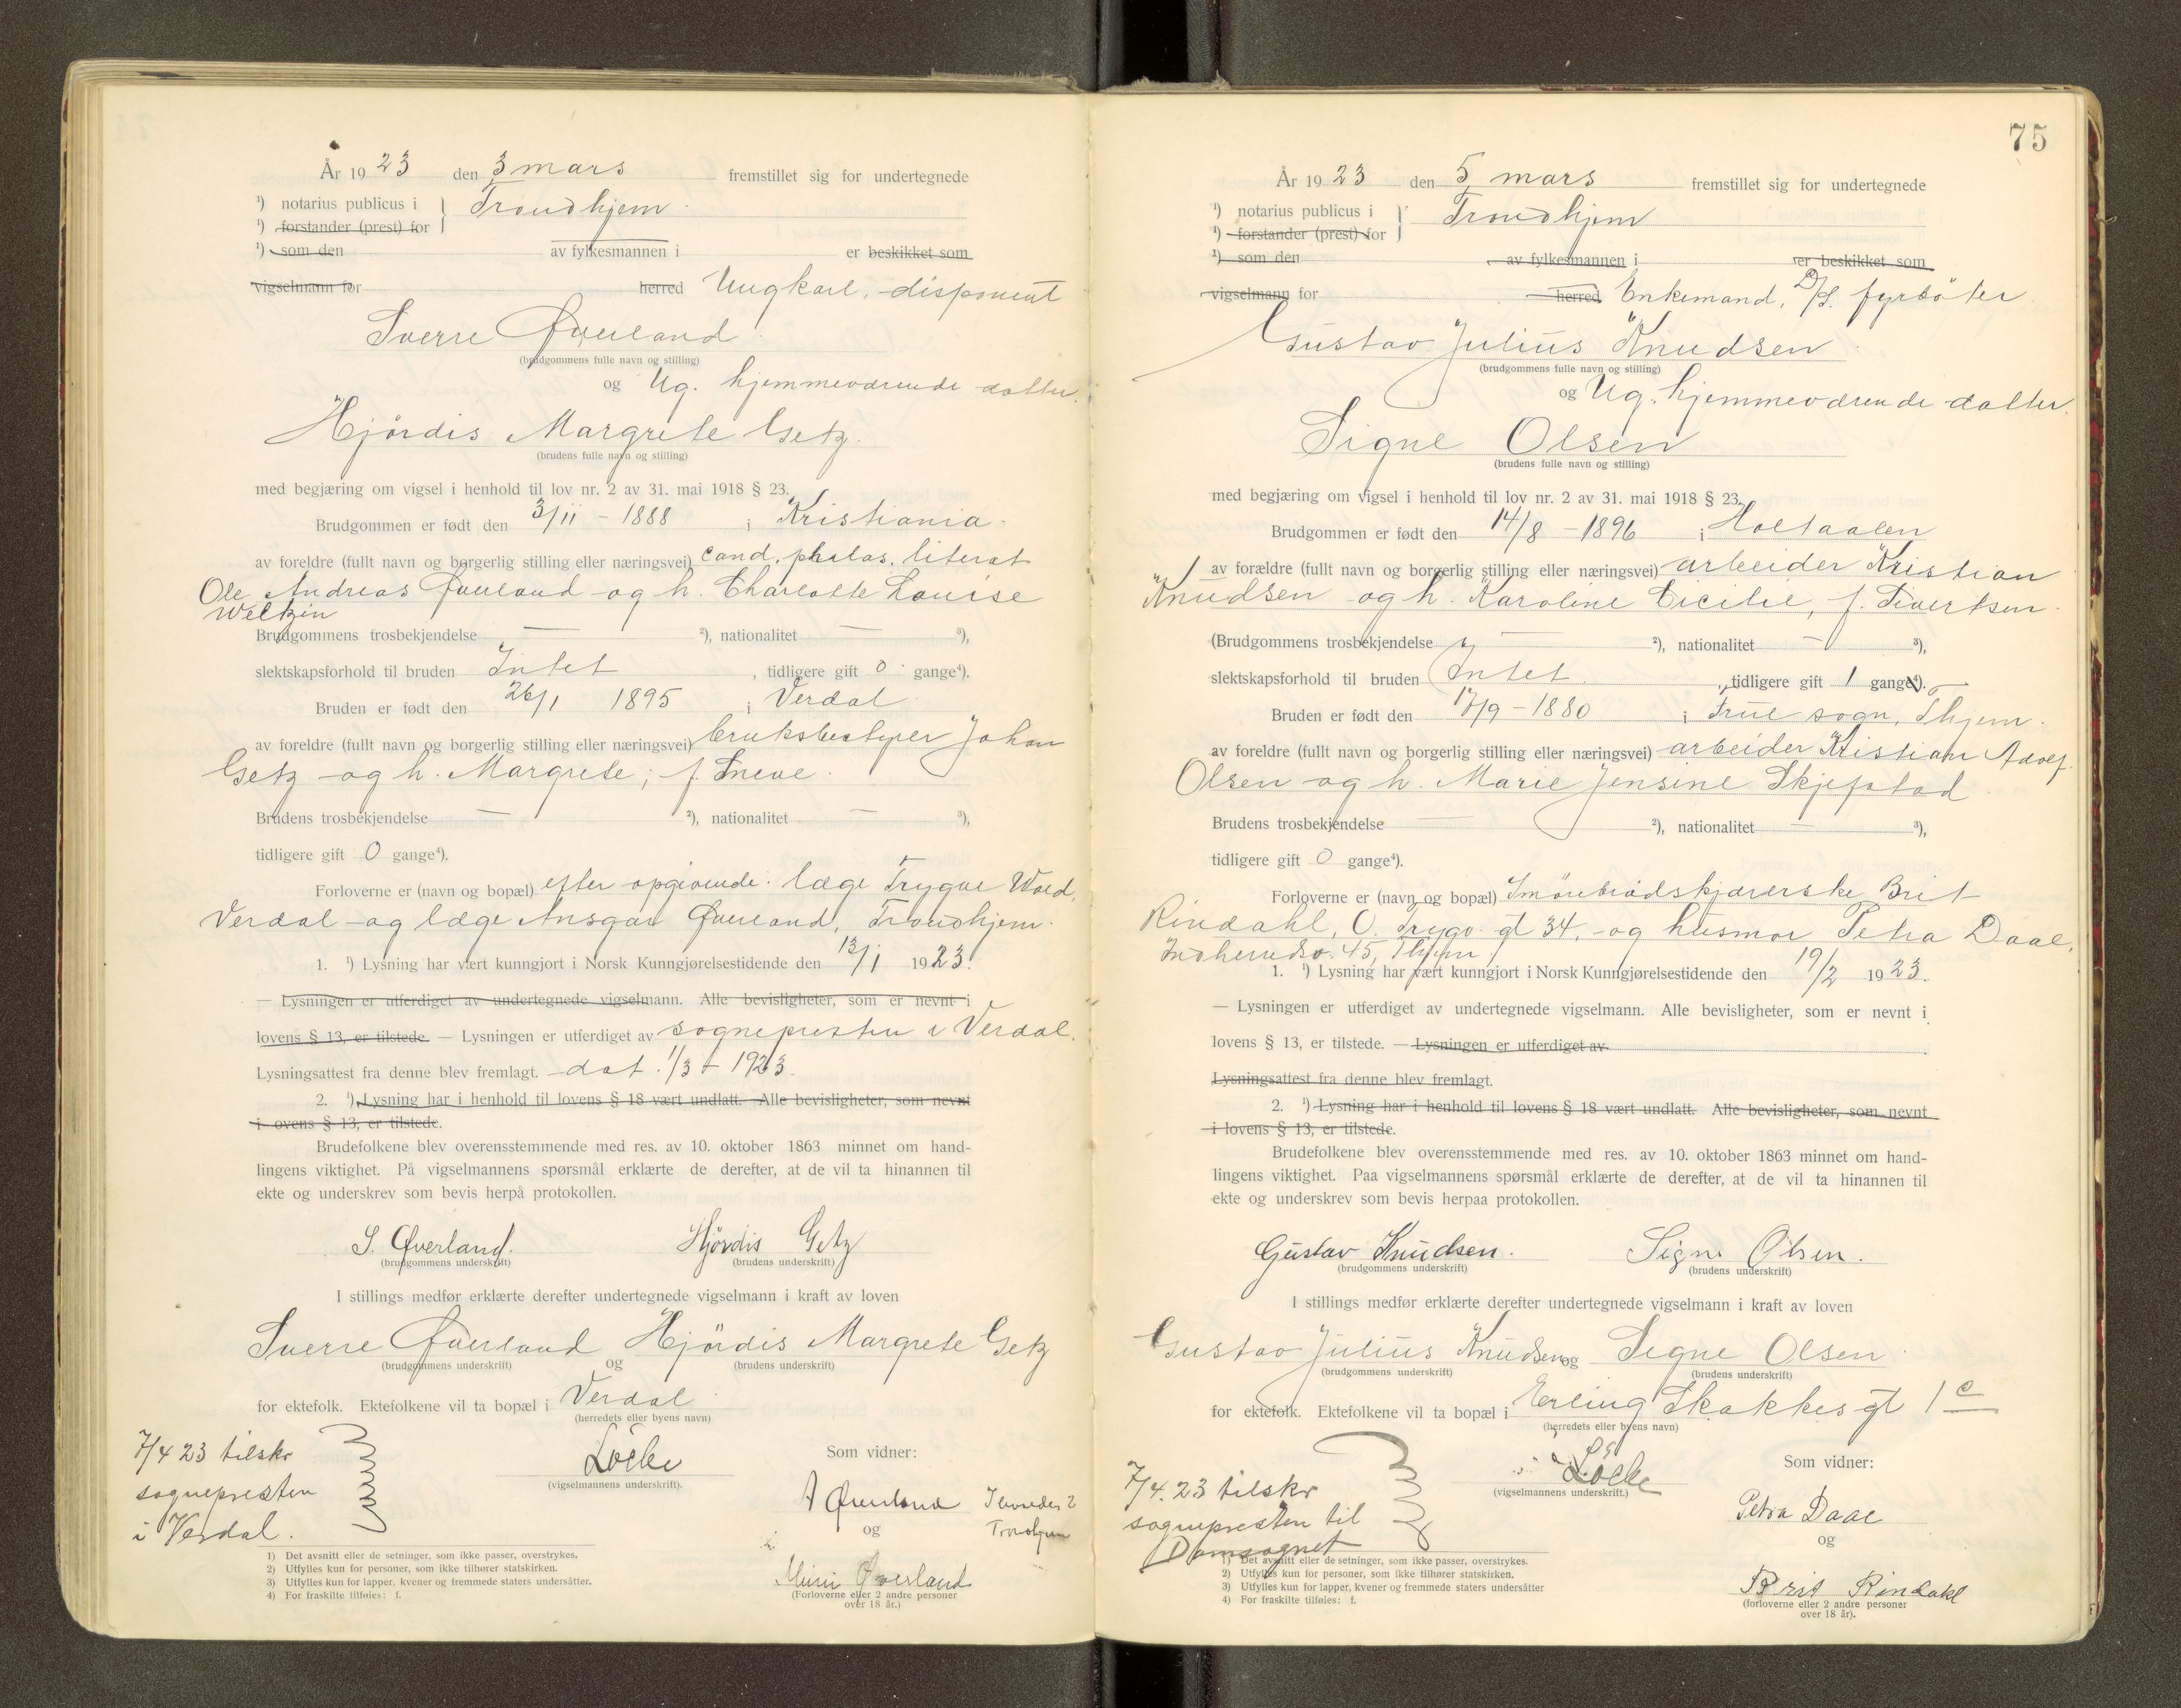 År 1923 den 3 mars fremstillet sig for undertegnede
¹) notarius publicus i Trondhjem
¹) forstander (prest) for
¹) som den av fylkesmannen i er beskikket som
vigselmann for herred Ungkarl, disponent
Sverre Øverland
(brudgommens fulle navn og stilling)
og Ug. hjemmeværende datter.
Hjördis Margrete Getz.
(brudens fulle navn og stilling)
med begjæring om vigsel i henhold til lov nr. 2 av 31. mai 1918 § 23.
Brudgommen er født den 3/11 - 1888 i Kristiania.
av foreldre (fullt navn og borgerlig stilling eller næringsvei) cand. philos. literat
Ole Andreas Øverland og h. Charlotte Louise
Weltzin
Brudgommens trosbekjendelse — ²), nationalitet — ³),
slektskapsforhold til bruden Intet, tidligere gift 0 gange⁴).
Bruden er født den 26/1 1895 i Verdal
av foreldre (fullt navn og borgerlig stilling eller næringsvei) bruksbestyrer Johan
Getz og h. Margrete, f. Sneve.
Brudens trosbekjendelse — ²), nationalitet — ³),
tidligere gift 0 gange⁴).
Forloverne er (navn og bopæl) efter opgivende: læge Trygve Wold,
Verdal og læge Ansgar Øverland, Trondhjem.
1. ¹) Lysning har vært kunngjort i Norsk Kunngjørelsestidende den 13/1 1923.
— Lysningen er utferdiget av undertegnede vigselmann. Alle bevisligheter, som er nevnt i
lovens § 13, er tilstede. — Lysningen er utferdiget av sognepresten i Verdal.
Lysningsattest fra denne blev fremlagt. dat. 1/3 - 1923.
2. ¹) Lysning har i henhold til lovens § 18 vært undlatt. Alle bevisligheter, som nevnt
i ovens § 13, er tilstede.
Brudefolkene blev overensstemmende med res. av 10. oktober 1863 minnet om hand-
lingens viktighet. På vigselmannens spørsmål erklærte de derefter, at de vil ta hinannen til
ekte og underskrev som bevis herpå protokollen.
S. Øverland. Hjördis Getz
(brudgommens underskrift) (brudens underskrift)
I stillings medfør erklærte derefter undertegnede vigselmann i kraft av loven
Sverre Øverland og Hjördis Margrete Getz
(brudgommens underskrift) (brudens underskrift)
for ektefolk. Ektefolkene vil ta bopæl i Verdal
(herredets eller byens navn)
7/4 23 tilskr
sognepresten
i Verdal.
Löcke
(vigselmannens underskrift).
Som vidner:
A Øverland
og
Øverland
(Forloverne eller 2 andre personer
over 18 år.)
1) Det avsnitt eller de setninger, som ikke passer, overstrykes.
2) Utfylles kun for personer, som ikke tilhører statskirken.
3) Utfylles kun for lapper, kvener og fremmede staters undersåtter.
4) For fraskilte tilføies: f.
75
År 1923 den 5 mars fremstillet sig for undertegnede
¹) notarius publicus i Trondhjem
¹) forstander (prest) for
¹) som den av fylkesmannen i er beskikket som
vigselmann for herred Enkemand, D/S. fyrböter
Gustav Julius Knudsen
(brudgommens fulle navn og stilling)
og Ug. hjemmeværende datter.
Signe Olsen
(brudens fulle navn og stilling)
med begjæring om vigsel i henhold til lov nr. 2 av 31. mai 1918 § 23.
Brudgommen er født den 14/8 - 1896 i Holtaalen
av forældre (fullt navn og borgerlig stilling eller næringsvei) arbeider Kristian
Knudsen og h. Karoline Cicilie, f. Sivertsen.
(Brudgommens trosbekjendelse — ²), nationalitet — ³),
slektskapsforhold til bruden Intet, tidligere gift 1 gang⁴).
Bruden er født den 17/9 - 1880 i Frue sogn, Thjem.
av foreldre (fullt navn og borgerlig stilling eller næringsvei) arbeider Kristian Adolf
Olsen og h. Marie Jensine Skjefstad
Brudens trosbekjendelse — ²), nationalitet — ³),
tidligere gift 0 gange⁴).
Forloverne er (navn og bopæl) Smörebrödskjærerske Brit
Rindahl, O. Trygv. gt 34, og husmor Petra Daae,
Indherredsv. 45, Thjem
1. ¹) Lysning har vært kunngjort i Norsk Kunngjørelsestidende den 19/2 1923.
— Lysningen er utferdiget av undertegnede vigselmann. Alle bevisligheter, som er nevnt i
lovens § 13, er tilstede. — Lysningen er utferdiget av
Lysningsattest fra denne blev fremlagt.
2. ¹) Lysning har i henhold til lovens § 18 vært undlatt. Alle bevisligheter, som nevnt
i lovens § 13, er tilstede.
Brudefolkene blev overensstemmende med res. av 10. oktober 1863 minnet om hand-
lingens viktighet. Paa vigselmannens spørsmål erklærte de derefter, at de vil ta hinannen til
ekte og underskrev som bevis herpaa protokollen.
Gustav Knudsen. Signe Olsen.
(brudgommens underskrift) (brudens underskrift)
I stillings medfør erklærte derefter undertegnede vigselmann i kraft av loven
Gustav Julius Knudsen og Signe Olsen
(brudgommens underskrift) (brudens underskrift)
for ektefolk. Ektefolkene vil ta bopæl i Erling Skakkes gt 1 c
(herredets eller byens navn)
7/4.23 tilskr
sognepresten til
Domsognet
Löcke
(vigselmannens underskrift.)
Som vidner:
Petra Daae
og
Brit Rindahl
(forloverne eller 2 andre personer
over 18 år).
1) Det avsnitt eller de setninger, som ikke passer, overstrykes.
2) Utfylles kun for personer, som ikke tilhører statskirken.
3) Utfylles kun for lapper, kvener og fremmede staters undersåtter
4) For fraskilte tilføies: f.